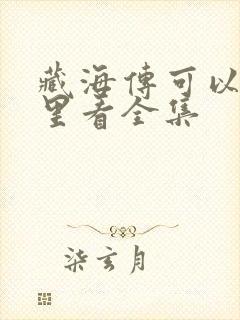 藏海傳可以
里看全集
柒玄月